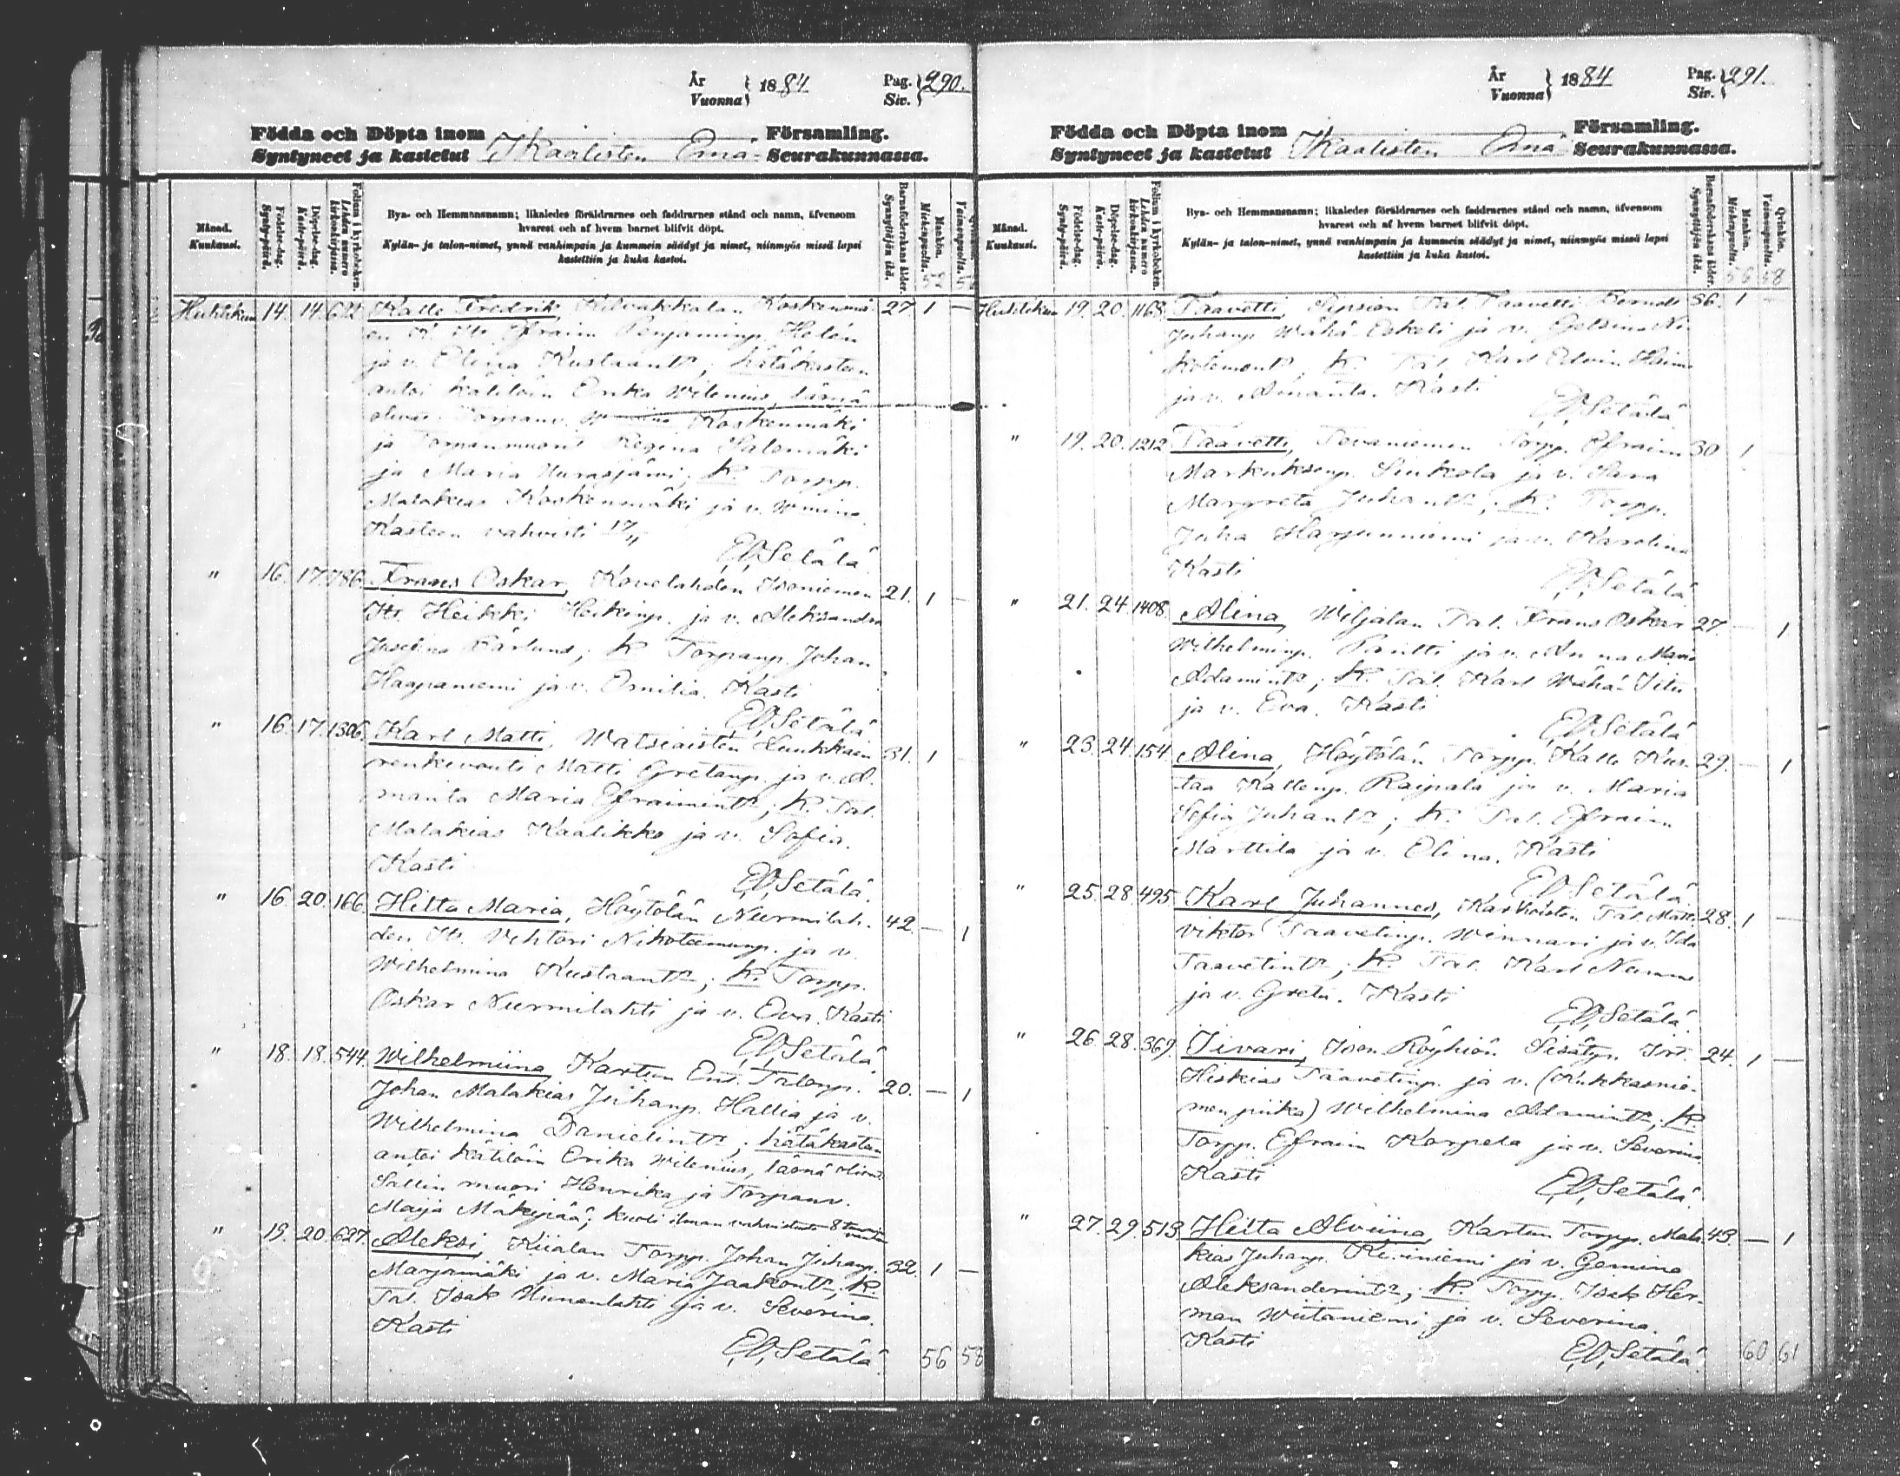 År 1884 Pag. 290.
Vuonna Siv.
Födda och Döpta inom Församling.
Syntyneet ja kastetut Ikaalisten Emä- Seurakunnassa.
Månad. Kuukausi.
Födelse-dag. Synty-päivä.
Döpelse-dag. Kaste-päivä.
Folium i kyrkoboken. Lehden numero kirkonkirjassa.
Bya- och Hemmansnamn; likaledes föräldrarnes och faddrarnes stånd och namn, äfvensom
hvarest och af hvem barnet blifvit döpt.
Kylän- ja talon-nimet, ynnä vanhimpain ja kummein säädyt ja nimet, niinmyös missä lapsi
kastettiin ja kuka kastoi.
Barnaföderskans ålder. Synnyttäjän ikä.
Mankön. Miehenpuolia.
Qvinkön. Vaimonpuolia.
Huhtikuu 14. 14. Kalle Fredrik, Kilvakkalan Koskenmä- 27 1 —
en Efraim Benjaminp. Helén
ja v. Elina Kustaant^r; hätäkasteen
antoi kätilöin Erika Wilenius, läsnä
olivat Torpanv. Koskenmäki
ja Torpanmuori Regina Salomäki
ja Maria; K. Torpp.
Malakias Koskenmäki ja v. Wmiina.
Kasteen vahvisti
E.V. Setälä.
" 16. 17. 786. Frans Oskar, Kovelahden Isoniemen 21. 1 —
Itr. Heikki Heikinp. ja v. Aleksandra
Josefina Kärlund; K. Torpanp. Johan
Haapaniemi ja v. Emilia. Kasti
E.V. Setälä.
" 16. 17. 1306. Karl Matti, Watsiaisten Luukkaan 31. 1 —
renkivouti Matti Gretanp. ja v. A-
manta Maria Efraimint^r; K. Tal.
Malakias Kaalikko ja v. Sofia.
Kasti
E.V. Setälä.
" 16. 20. 166. Hilta Maria, Höytölän Nurmilah- 42. — 1
den Itr. Vihtori Nikoteemusp. ja v.
Wilhelmina Kustaant^r; K. Torpp.
Oskar Nurmilahti ja v. Eva. Kasti
E.V. Setälä.
" 18. 18. 544. Wilhelmiina, Kartun Ent. Talonp. 20. — 1
Johan Malakias Juhanp. Hallia ja v.
Wilhelmina Danielint^r; hätäkasteen
antoi kätilöin Erika Wilenius, läsnä olivat
Sallin muori Henrika ja Torpanv.
Maija Mäkipää; kuoli ilman vahvistusta 8 tunnin vanha
" 19. 20. 627. Aleksi, Kiialan Torpp. Johan Juhanp. 32. 1 —
Marjamäki ja v. Maria Jaakont^r; K.
Tal. Isak ja v. Severina.
Kasti
E.V. Setälä. 56 58
År 1884 Pag. 291.
Vuonna Siv.
Födda och Döpta inom Församling.
Syntyneet ja kastetut Ikaalisten Emä Seurakunnassa.
Månad. Kuukausi.
Födelse-dag. Synty-päivä.
Döpelse-dag. Kaste-päivä.
Folium i kyrkoboken. Lehden numero kirkonkirjassa.
Bya- och Hemmansnamn; likaledes föräldrarnes och faddrarnes stånd och namn, äfvensom
hvarest och af hvem barnet blifvit döpt.
Kylän- ja talon-nimet, ynnä vanhimpain ja kummein säädyt ja nimet, niinmyös missä lapsi
kastettiin ja kuka kastoi.
Barnaföderskans ålder. Synnyttäjän ikä.
Mankön. Miehenpuolia. 56
Qvinkön. Vaimonpuolia. 58
Huhtikuu 19. 20. 1168. Taavetti, Sipsiön Tal. Taavetti 36. 1 —
Juhanp. Wähä Eskeli ja v. Ni-
kotemont^r; K. Tal. Karl Edvin
ja v. Amanta. Kasti
E.V. Setälä
" 19. 20. 1212. Taavetti, Tevaniemen Torpp. Efraim 30 1
Markuksenp. Sinkola ja v. Sara
Margreta Juhant^r; K. Torpp.
Juha Harjunniemi ja v. Karolina
Kasti
E.V. Setälä.
" 21. 24. 1408. Alina, Wiljalan Tal. Frans Oskar 27. — 1
Wilhelminp. Pantti ja v. Anna Maria
Adamint^r; K. Tal. Karl Wähä
ja v. Eva. Kasti
E.V. Setälä
" 23. 24. 154. Alina, Höytölän Torpp. Kalle Kus- 29. — 1
taa Kallenp. Raipala ja v. Maria
Sofia Juhant^r; K. Tal. Efraim
Marttila ja v. Elina. Kasti
E.V. Setälä.
" 25. 28. 495. Karl Juhannes, Karhoisten Tal. Matti 28. 1 —
Viktor Taavetinp. Winnari ja v. Ida
Taavetint^r; K. Tal. Karl
ja v. Greta. Kasti
E.V. Setälä.
" 26. 28. 369. Iivari, Ison Röyhiön Sisätyn Irt. 24. 1 —
Hiskias Taavetinp. ja v. (Kukkasnie-
men piika) Wilhelmina Adamint^r; K.
Torpp. Efraim Korpela ja v. Severina
Kasti
E.V. Setälä.
" 27. 29. 513. Hilta Alviina, Kartun Torpp. Mala- 43. — 1
kias Juhanp. Kiviniemi ja v. Gemina
Aleksanderint^r; K. Torpp. Isak Her-
man Wiitaniemi ja v. Severina.
Kasti
E.V. Setälä. 60 61